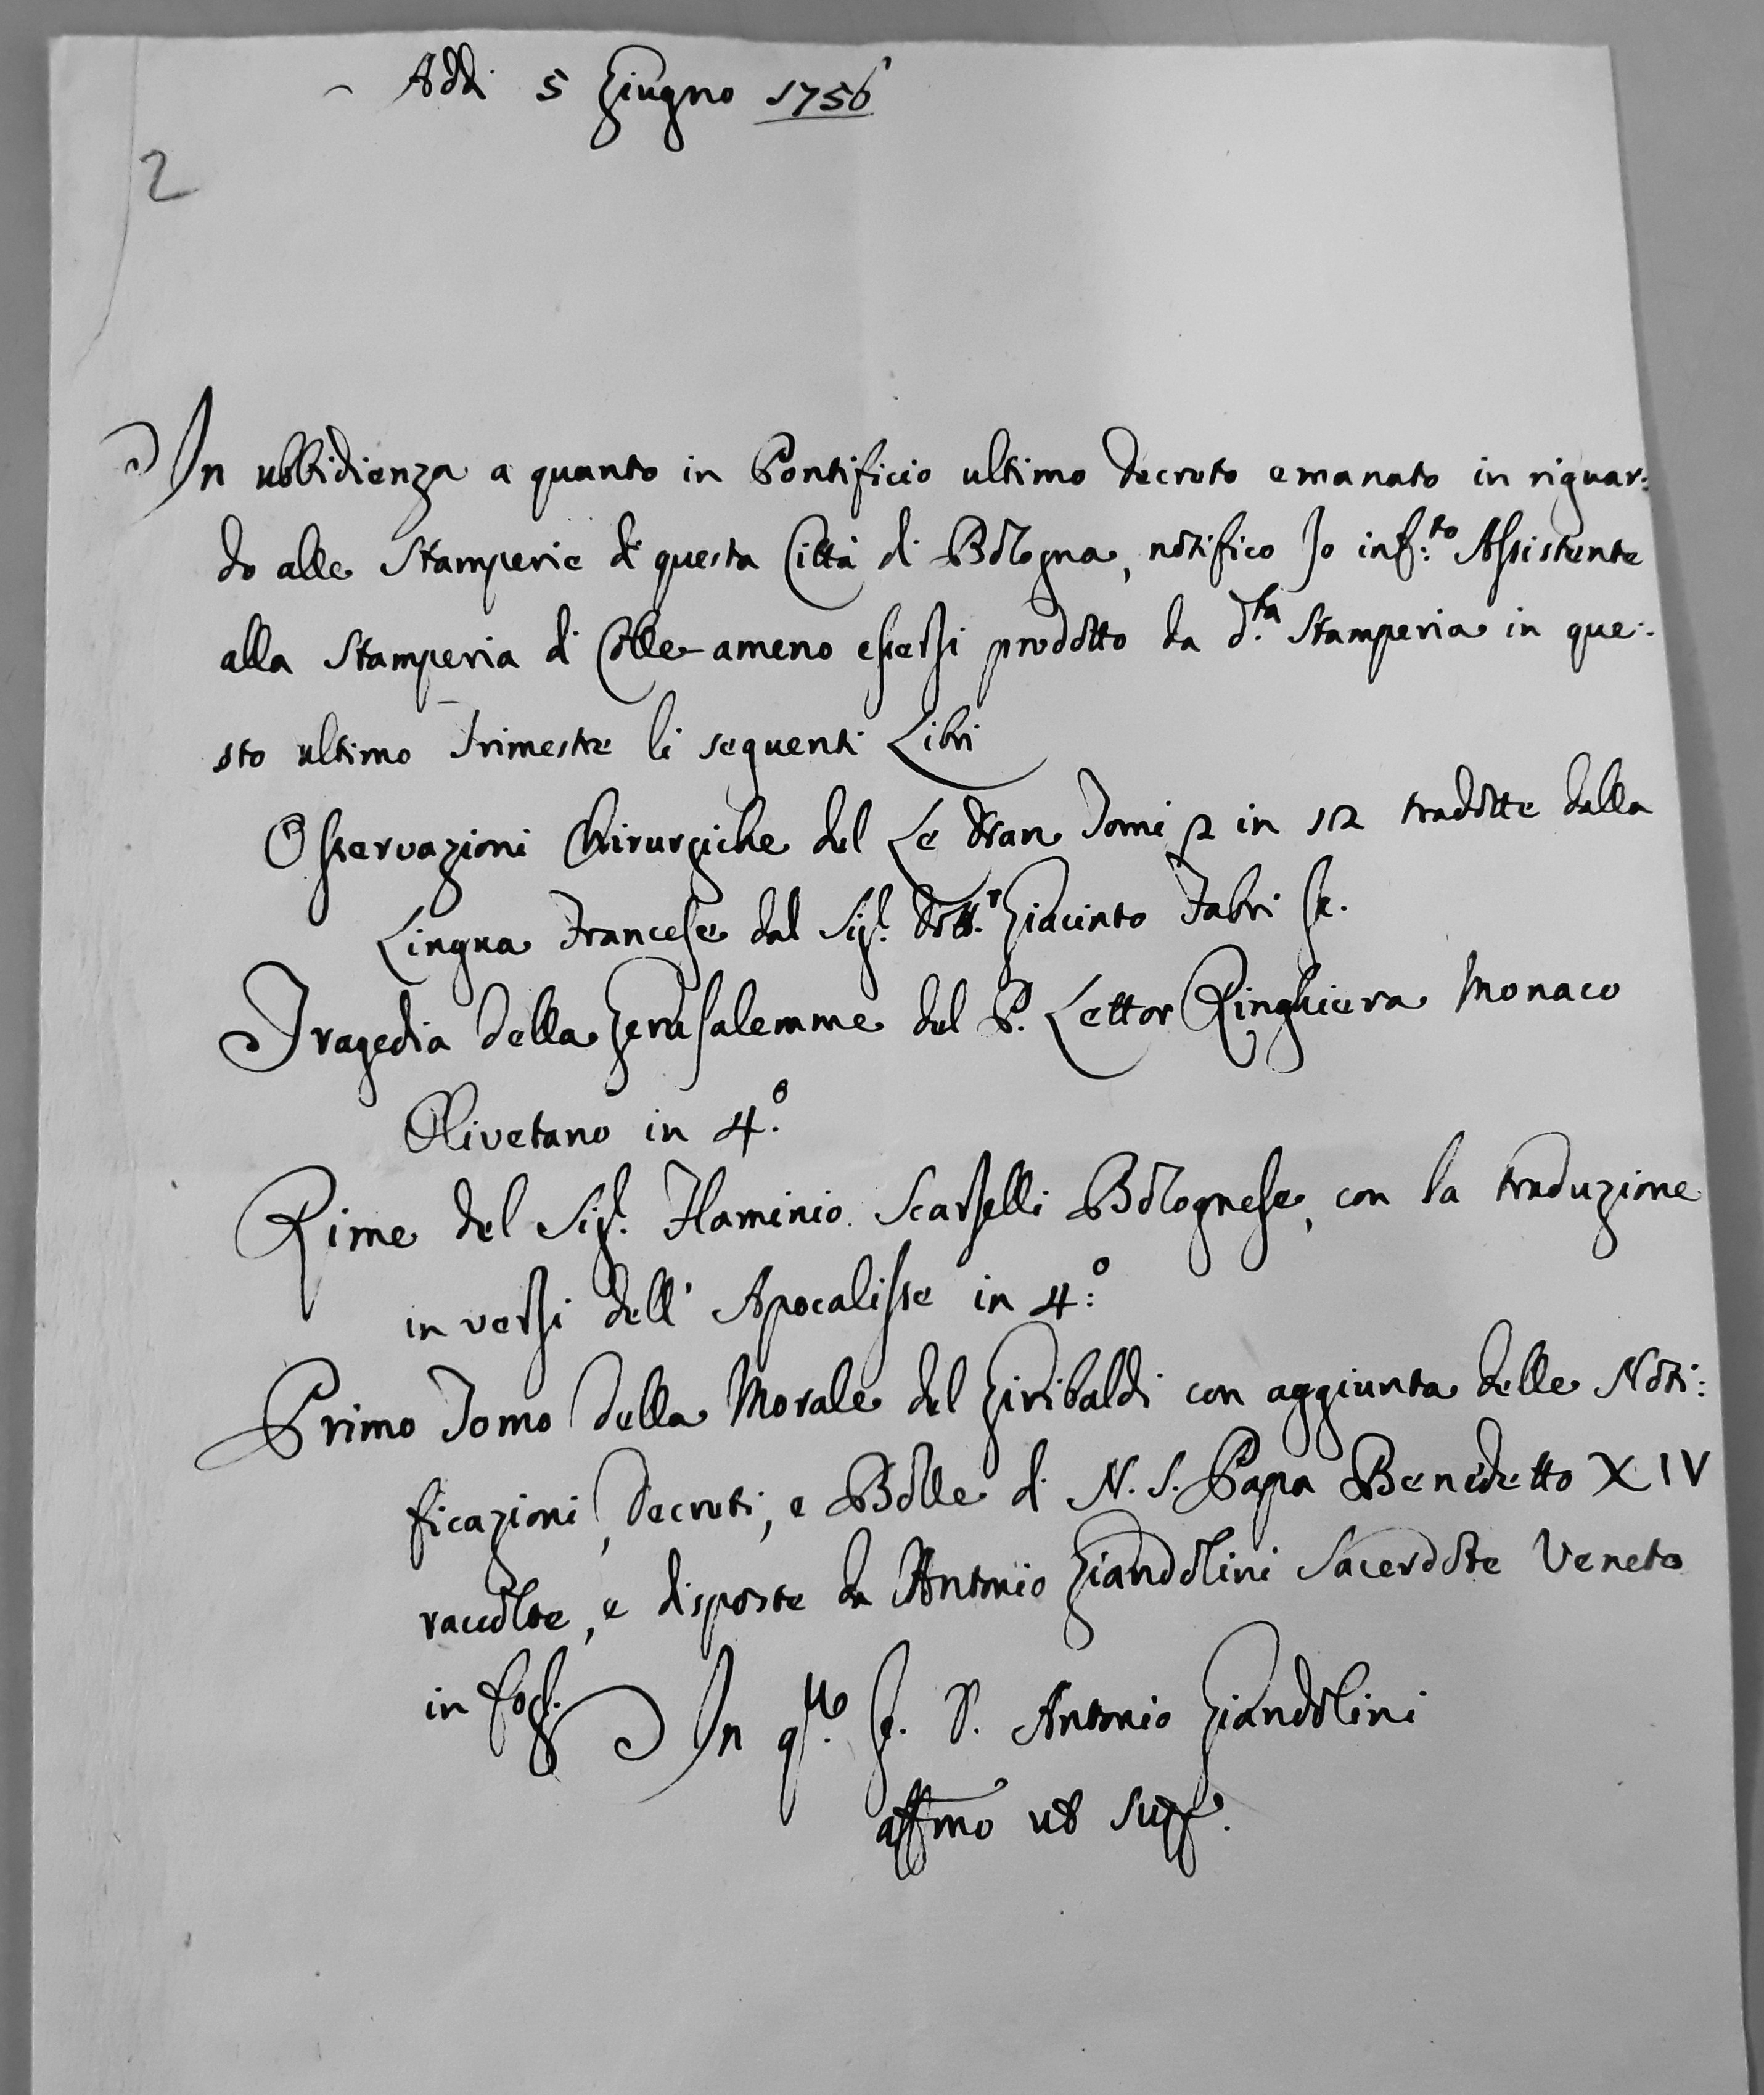 Addi 5 Giugno 1756
2
In ubbidienza a quanto in Pontificio ultimo decreto emanato in riguar:
do alle Stamperie di questa Città di Bologna, notifico Io inf:to Assistente
alla Stamperia di Colle-ameno essersi prodotto da d.ta Stamperia in que:
sto ultimo Trimestre li seguenti Libri
Osservazioni Chirurgiche del Le Dran Tomi 2 in 12 tradotte dalla
Lingua Francese dal Sig.r Dott.r Giacinto Fabri
Tragedia della Gerusalemme del P. Lettor Ringhiera Monaco
Olivetano in 4.o
Rime del Sig.r Flaminio Scarselli Bolognese, con la traduzione
in versi dell' Apocalisse in 4:o
Primo Tomo della Morale del Giribaldi con aggiunta delle Noti:
ficazioni, Decreti, e Bolle di N. S. Papa Benedetto XIV
raccolte, e disposte da Antonio Giandolini Sacerdote Veneto
in fogl.
In q.to D. Antonio Giandolini
affmo ut sup.